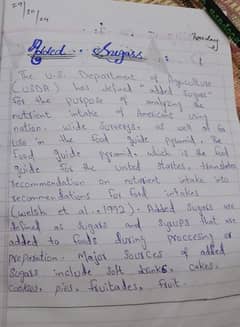 29/10/24
Tuesday
Added Sugars
The U.S. Department of Agriculture
(USDA) has defined "added sugar"
for the purpose of analyzing the
nutrient intake of Americans using
nation. wide surveys. as well as for
use in the Food guide pyramid. the
food guide pyramid. which is the food
guide for the united startes, translates
recommendation on nutrient intake into
recommendations for food intakes
(welsh et al., 1992). Added sugars are
defined as sugars and syrups that are
added to foods during proccesing or
preperation. Major sources of added
sugars include soft drinks, cakes,
cookies, pies, fruitades, fruit.